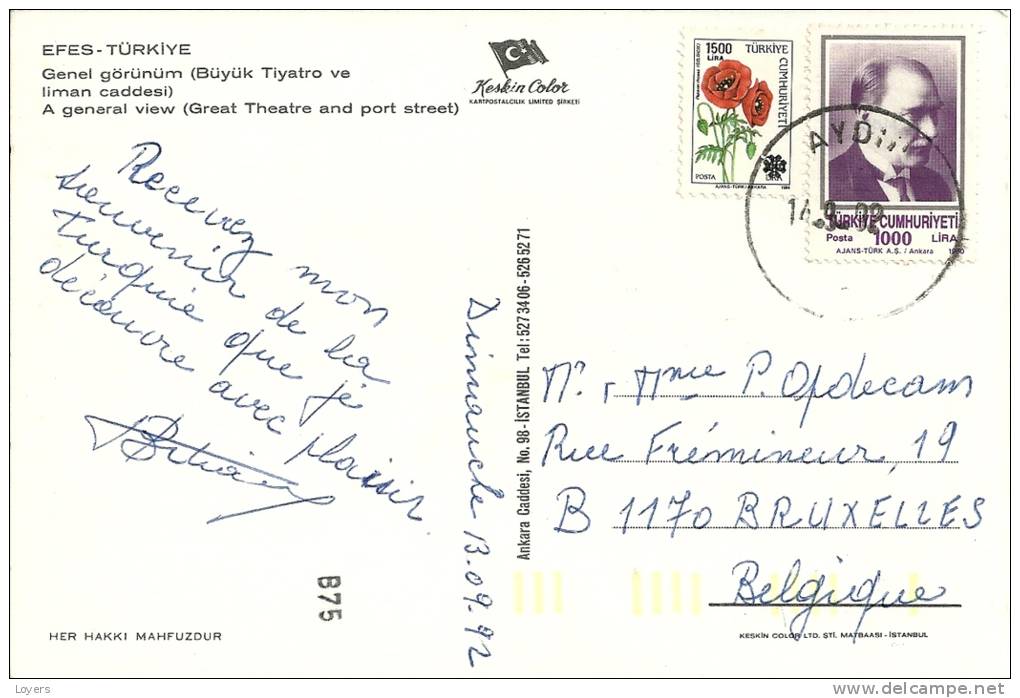 EFES - TÜRKİYE
Genel görünüm (Büyük Tiyatro ve
liman caddesi)
A general view (Great Theatre and port street)
Keskin Color
KARTPOSTALCILIK LIMITED ŞİRKETİ
1500
LİRA
TÜRKİYE
CUMHURİYETİ
POSTA
LİRA
AJANS-TÜRK/ANKARA
TÜRKİYE CUMHURİYETİ
Posta 1000 LİRA
AJANS-TÜRK A.Ş. / Ankara 1990
AYDIN
14-9-92
Recevez mon
souvenir de la
turquie que je
découvre avec plaisir
Dimanche 13.09.92
Ankara Caddesi, No. 98-İSTANBUL Tel: 527 34 06 - 526 52 71
Mr, Mme P. Opdecam
Rue Frémineur, 19
B 1170 BRUXELLES
Belgique
B75
HER HAKKI MAHFUZDUR
KESKİN COLOR LTD. ŞTİ. MATBAASI - İSTANBUL
Loyers
delcampe.net